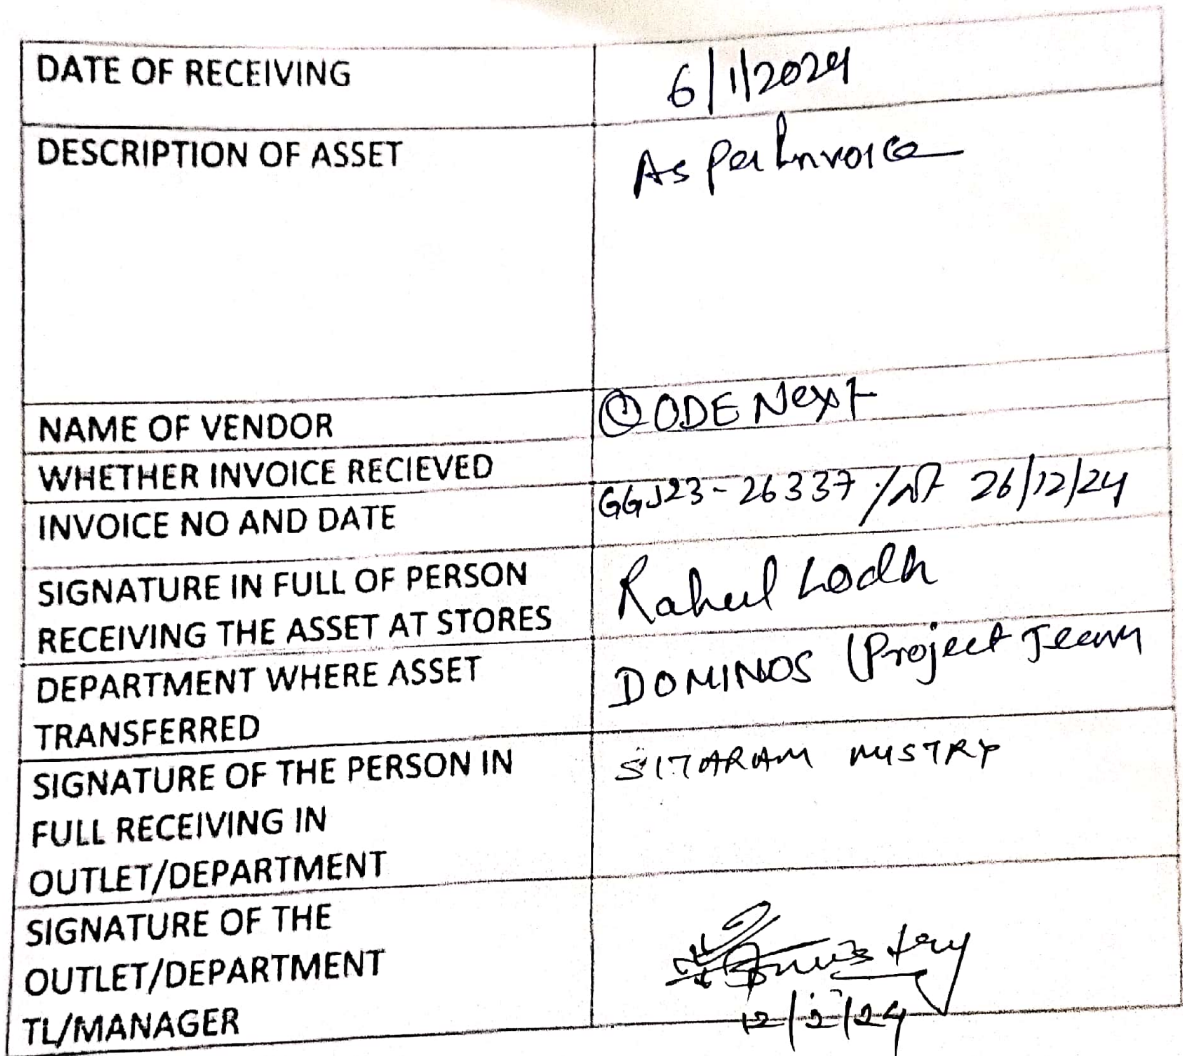 DATE OF RECEIVING 6/1/2024
DESCRIPTION OF ASSET As per Invoice
NAME OF VENDOR CODE Next
WHETHER INVOICE RECIEVED
INVOICE NO AND DATE GGJ23-26337 26/12/24
SIGNATURE IN FULL OF PERSON Rahul Lodh
RECEIVING THE ASSET AT STORES
DEPARTMENT WHERE ASSET DOMINOS (Project Team
TRANSFERRED
SIGNATURE OF THE PERSON IN SITARAM MISTRY
FULL RECEIVING IN
OUTLET/DEPARTMENT
SIGNATURE OF THE
OUTLET/DEPARTMENT
TL/MANAGER 12/2/24